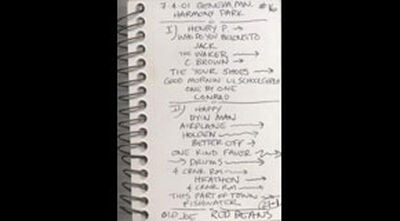 7-4-01 GENEVA MN. #16
HARMONY PARK
I) HENRY P. →
WHO DO YOU BELONG TO
JACK
THE WAKER →
C BROWN →
TIE YOUR SHOES →
GOOD MORNIN LIL SCHOOLGIRL
ONE BY ONE
CONRAD
II) HAPPY
DYIN MAN
AIRPLANE →
HOLDEN →
BETTER OFF →
ONE KIND FAVOR →
→ DRUMS →
4 CRNR RM →
HEATHON →
4 CRNR RM →
THIS PART OF TOWN →
FISHWATER
OLD JOE RED BEANS